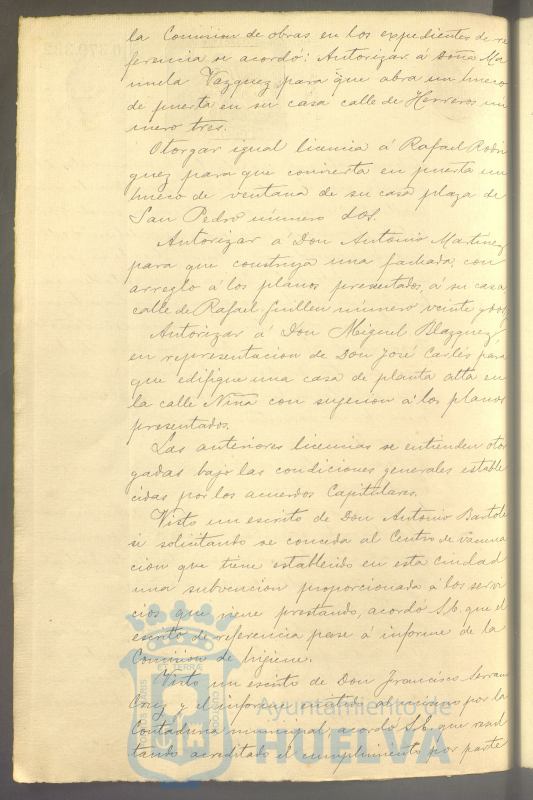 la Comision de obras en los expedientes de re
ferencia se acordó: Autorizar á Doña Ma
nuela Vazquez para que abra un hueco
de puerta en su casa calle de Herreros nu
mero tres.
Otorgar igual licencia á Rafael Rodri
guez para que convierta en puerta un
hueco de ventana de su casa plaza de
San Pedro número dos.
Autorizar á Don Antonio Martinez
para que construya una fachada, con
arreglo á los planos presentados, á su casa
calle de Rafael Guillen número veinte y dos.
Autorizar á Don Miguel Blazquez
en representacion de Don José Carlés para
que edifique una casa de planta alta en
la calle Niña con sugecion á los planos
presentados.
Las anteriores licencias se entienden otor
gadas bajo las condiciones generales estable
cidas por los acuerdos Capitulares.
Visto un escrito de Don Antonio Bartole
si solicitando se conceda al Centro de vacuna
cion que tiene establecido en esta ciudad
una subvencion proporcionada á los servi
cios que viene prestando, acordó S.E. que el
escrito de referencia pase á informe de la
Comision de higiene.
Visto un escrito de Don Francisco Serrano
Cruz y el informe emitido al mismo por la
Contaduria municipal, acordó S.E. que resul
tando acreditado el cumplimiento por parte
Ayuntamiento de
HUELVA